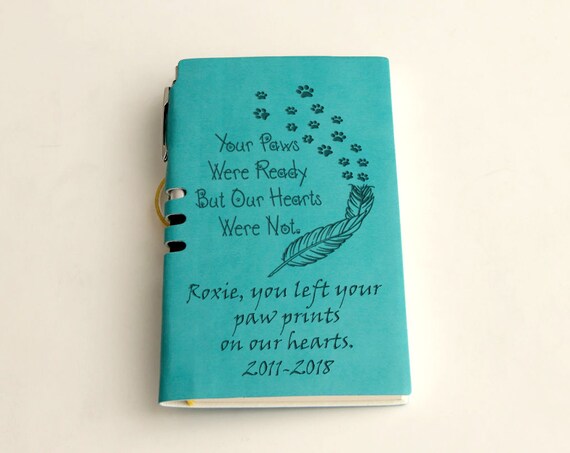 Your Paws
Were Ready
But Our Hearts
Were Not.
Roxie, you left your
paw prints
on our hearts.
2011-2018